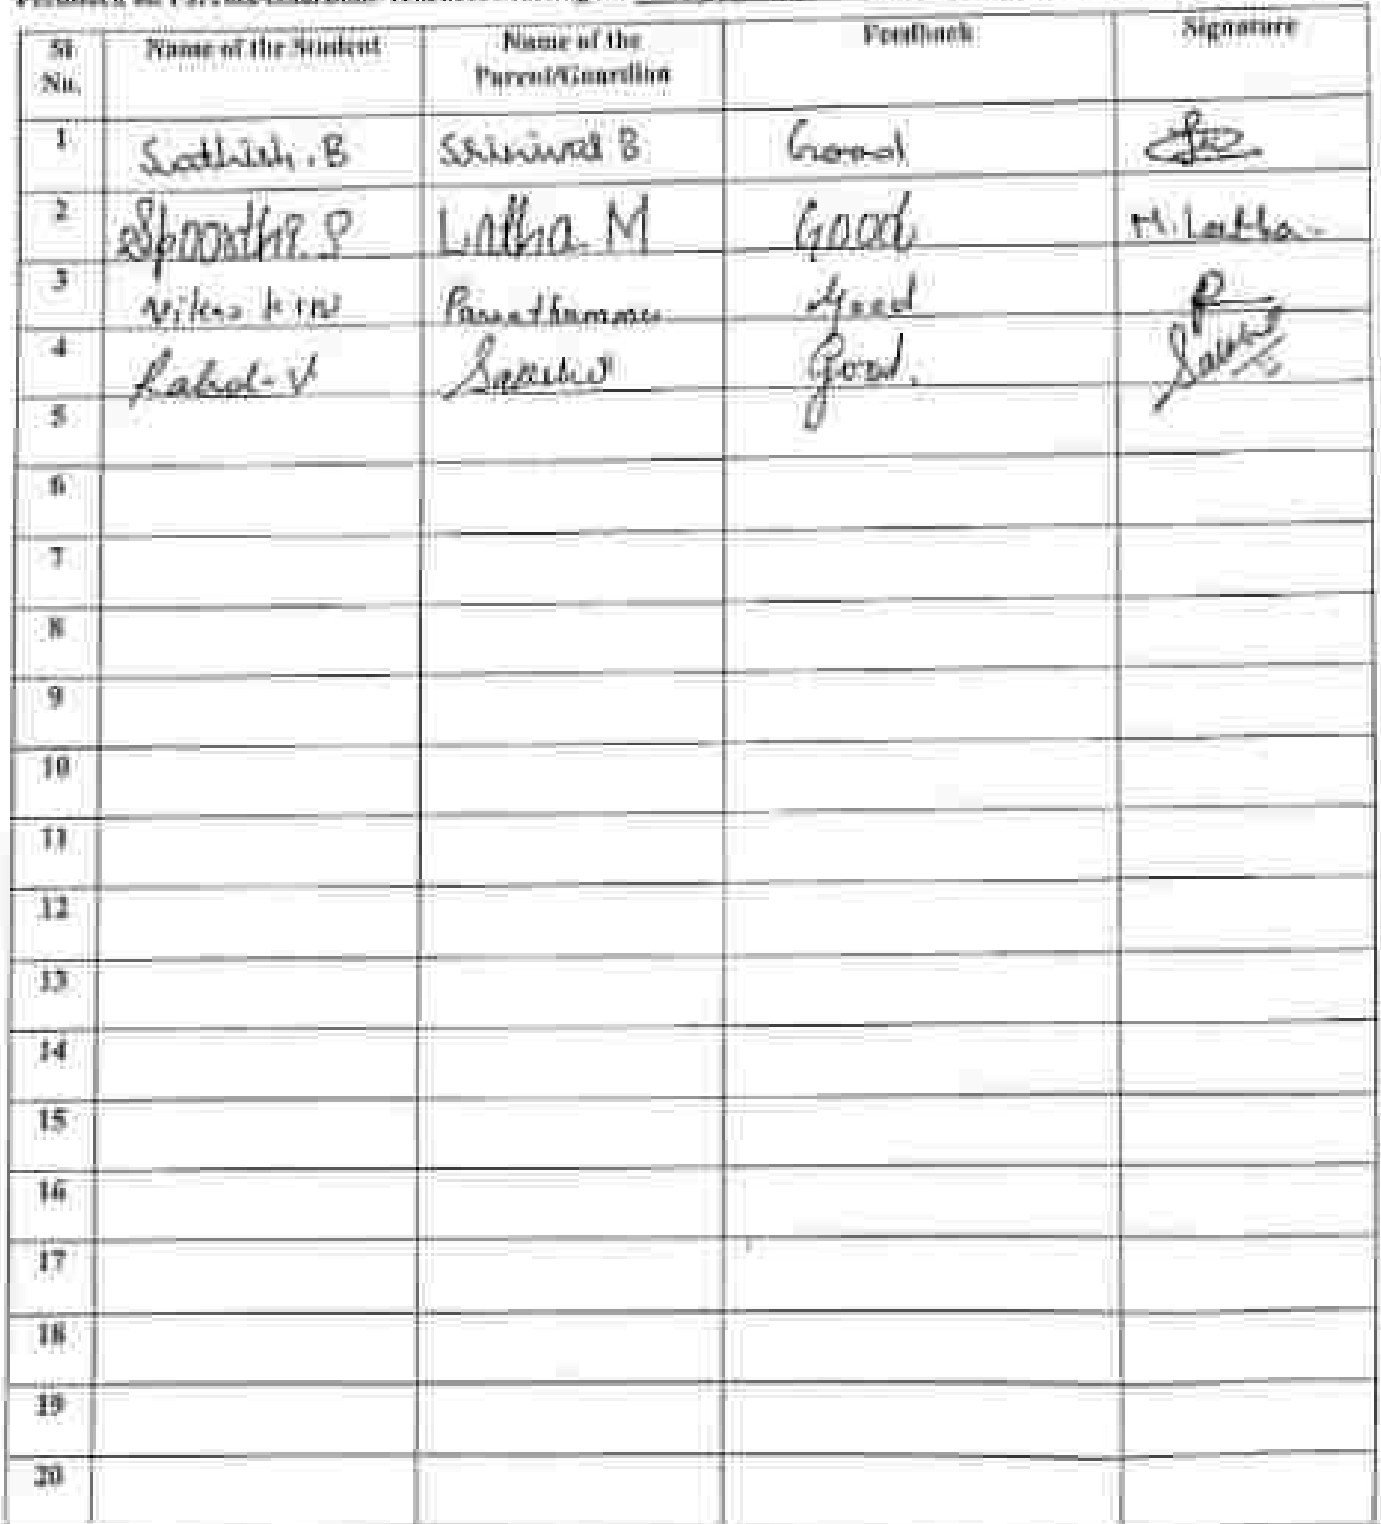 Sl No. Name of the Student Name of the Parent/Guardian Feedback Signature
1 Sathish . B Srinivas B Good
2 Spoorthi. S Latha. M Good M. Latha
3 Vikas K N Parvathamma Good
4 Rahul - V Good.
5
6
7
8
9
10
11
12
13
14
15
16
17
18
19
20